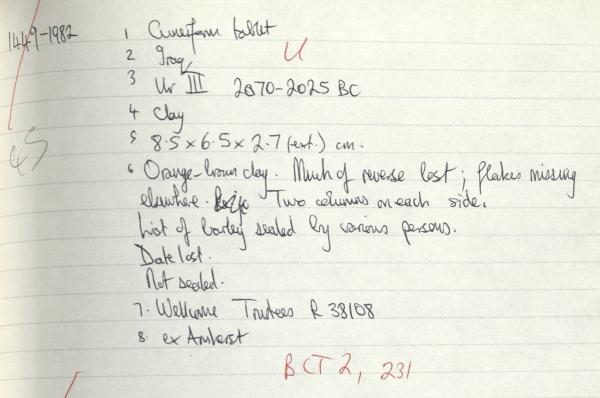 1449-1982 1 Cuneiform tablet
U
2 Iraq
3 Ur III 2070-2025 BC
4 Clay
45
5 8.5 x 6.5 x 2.7 (est.) cm.
6 Orange-brown clay. Much of reverse lost; flakes missing
elsewhere. Two columns on each side.
List of barley sealed by various persons.
Date lost.
Not sealed.
7. Wellcome Trustees R 38108
8. ex Amherst
BCT 2, 231